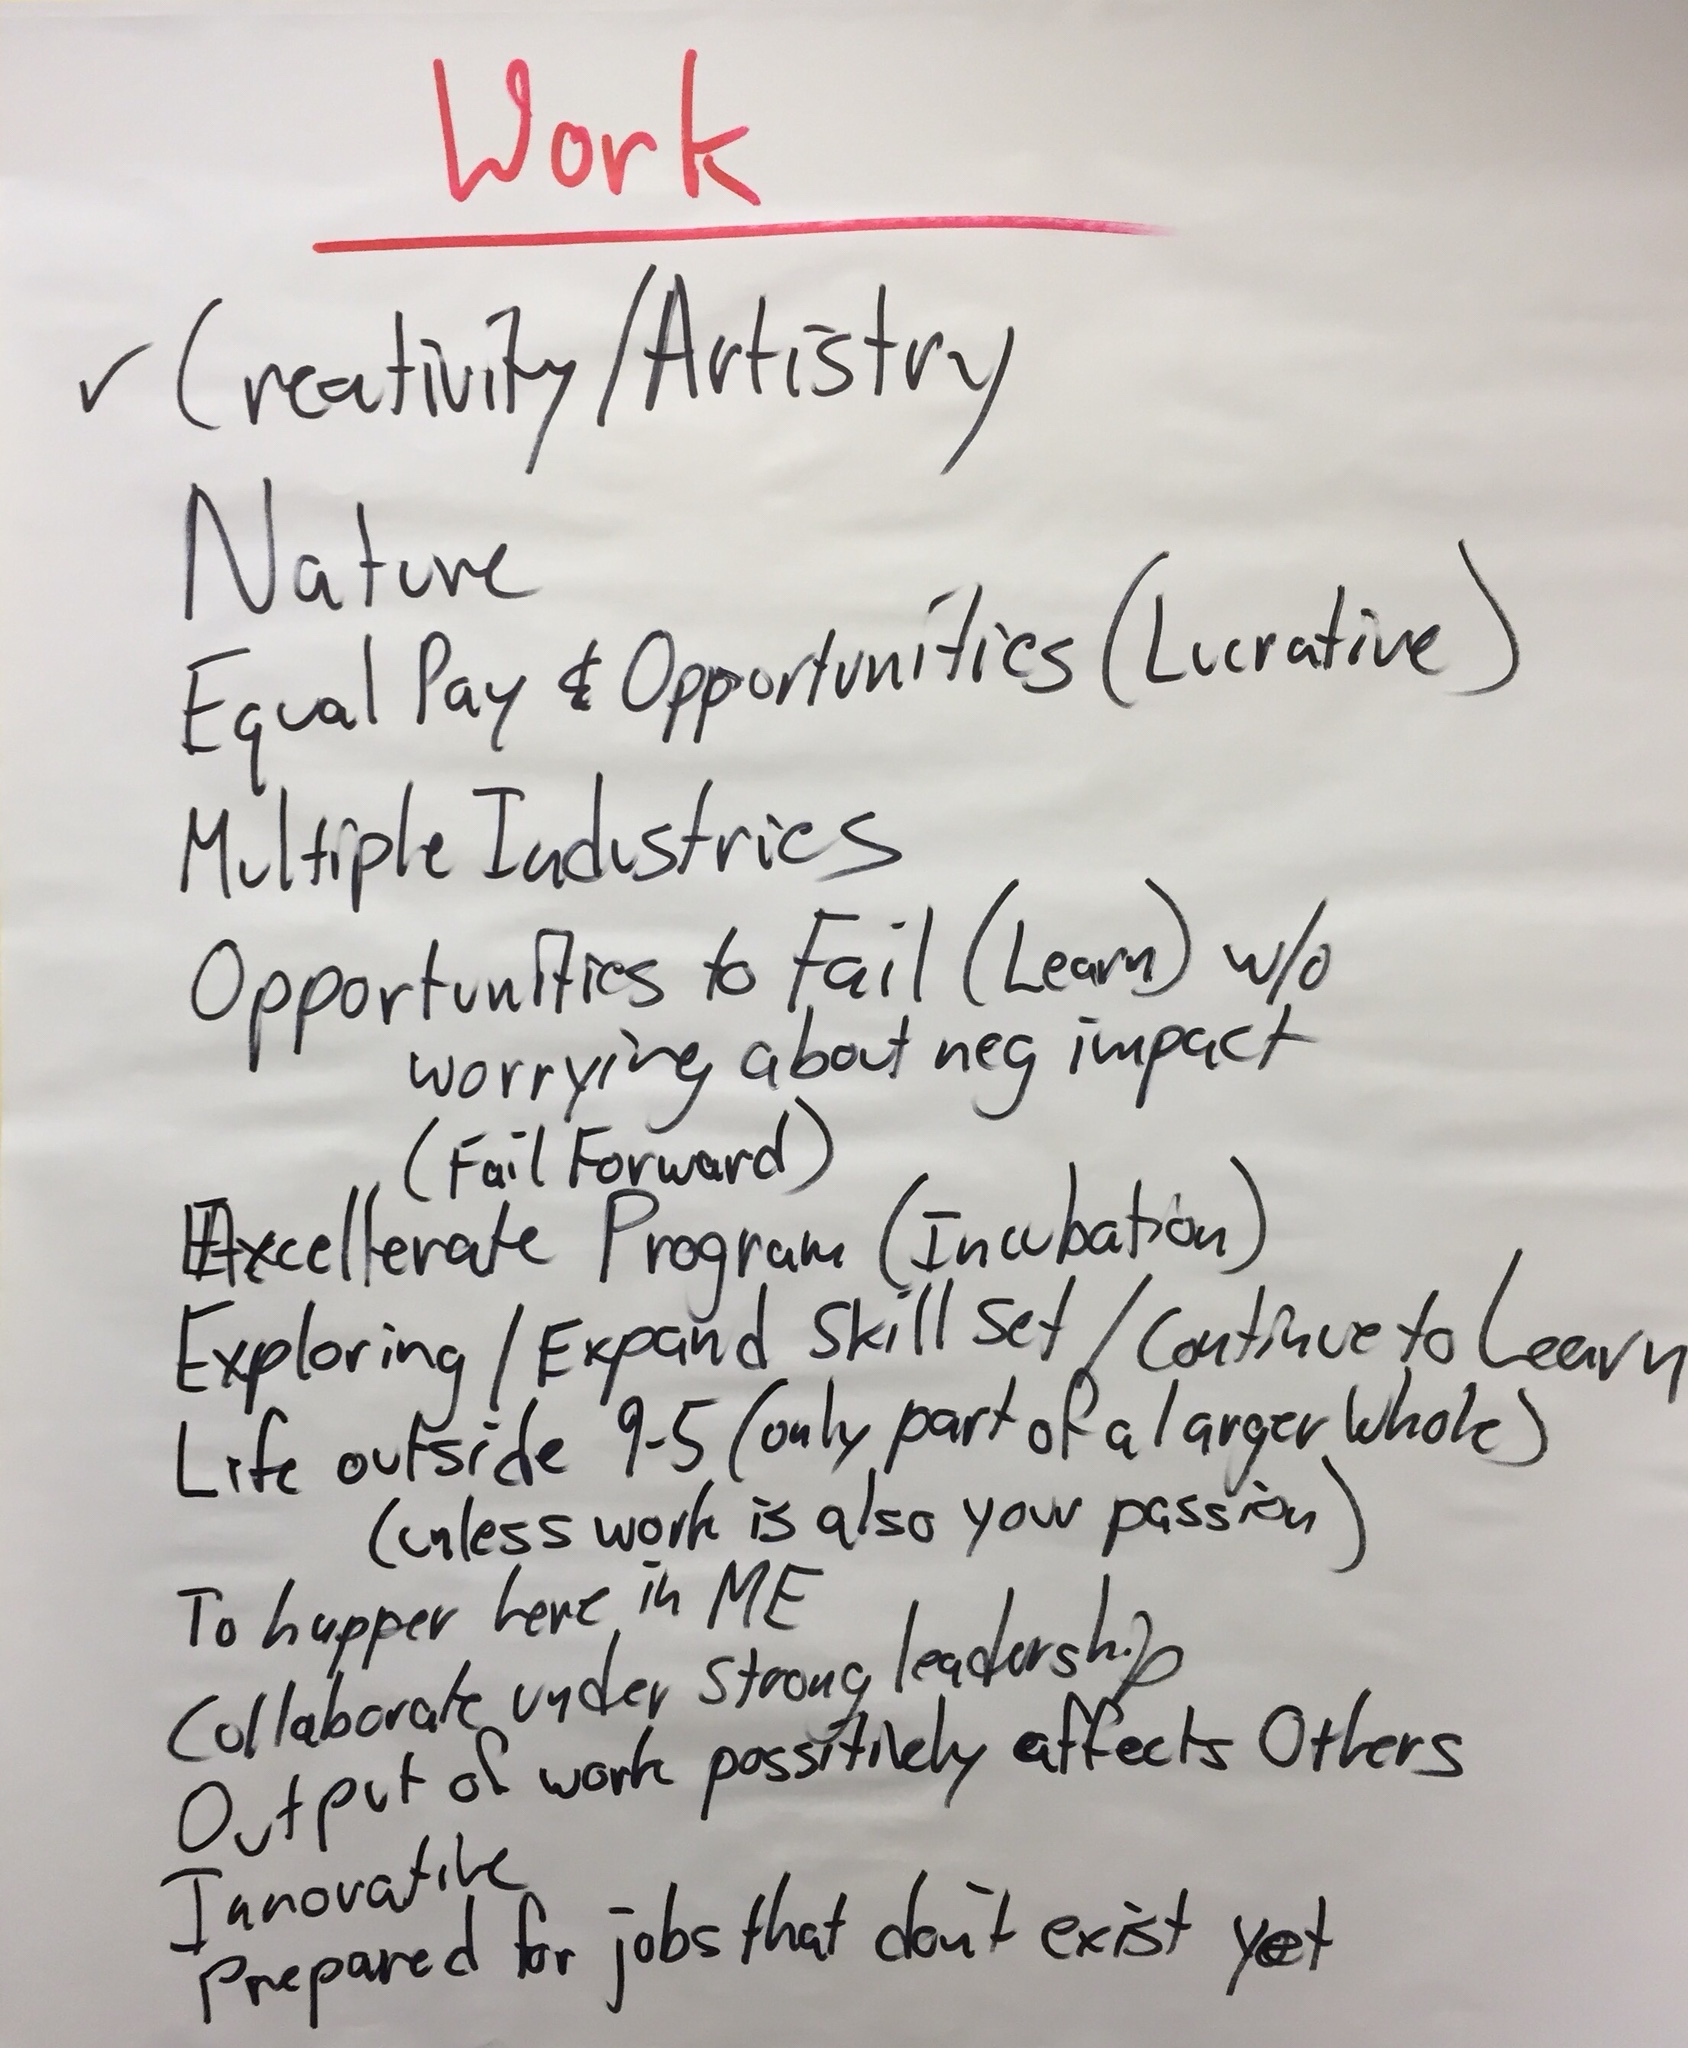 Work
✓ Creativity/Artistry
Nature
Equal Pay & Opportunities (Lucrative)
Multiple Industries
Opportunities to Fail (Learn) w/o
worrying about neg impact
(Fail Forward)
Axcellerate Program (Incubation)
Exploring / Expand Skill Set / Continue to Learn
Life outside 9-5 (only part of a larger Whole)
(unless work is also your passion)
To happer here in ME
Collaborate under strong leadership
Output of work possitively affects Others
Innovative
Prepared for jobs that don't exist yet